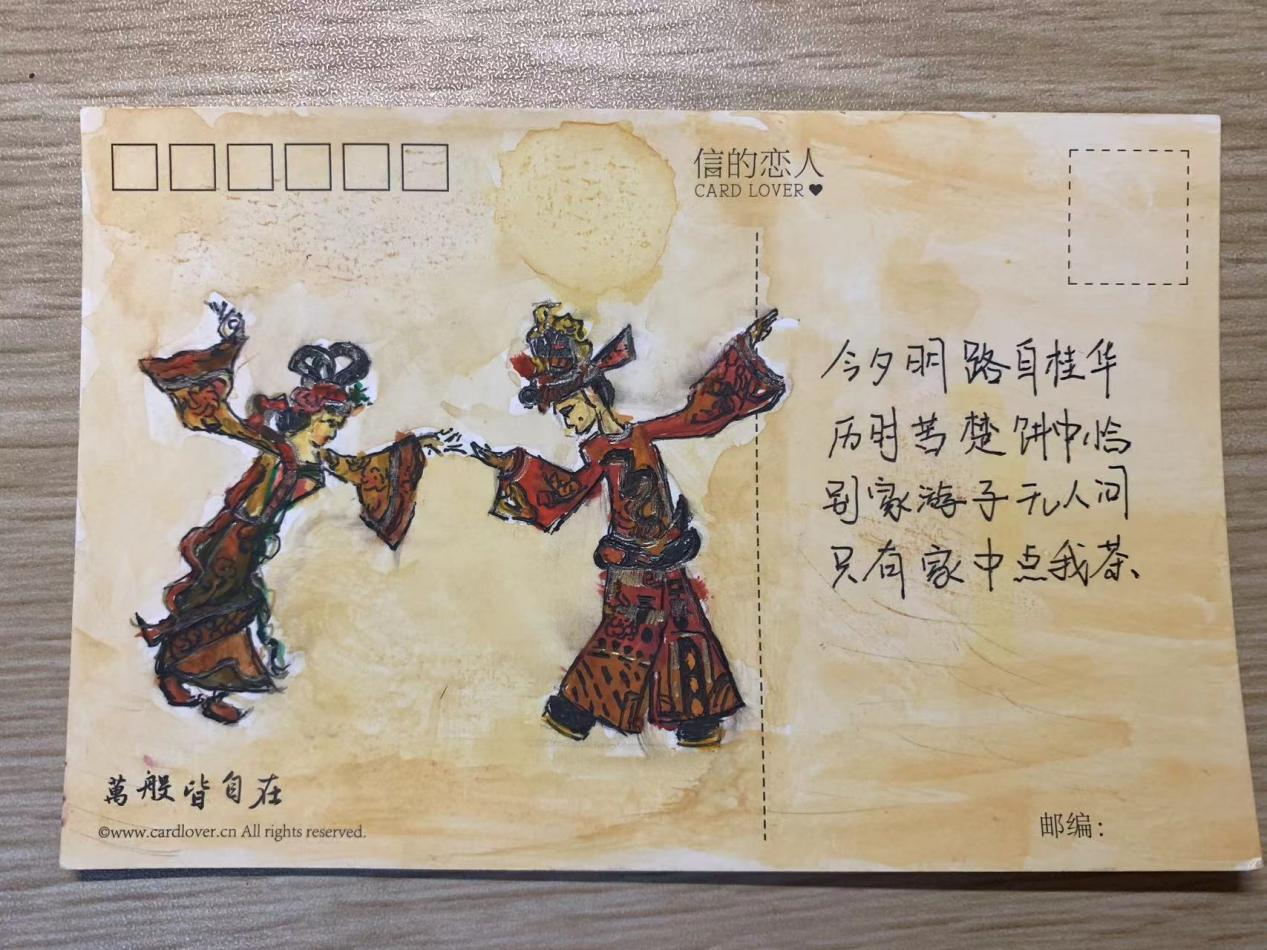 信的恋人
CARD LOVER
今夕明路自桂华
历时苦楚饼中怡
别家游子无人问
只有家中点我茶、
萬般皆自在
©www.cardlover.cn All rights reserved.
邮编：